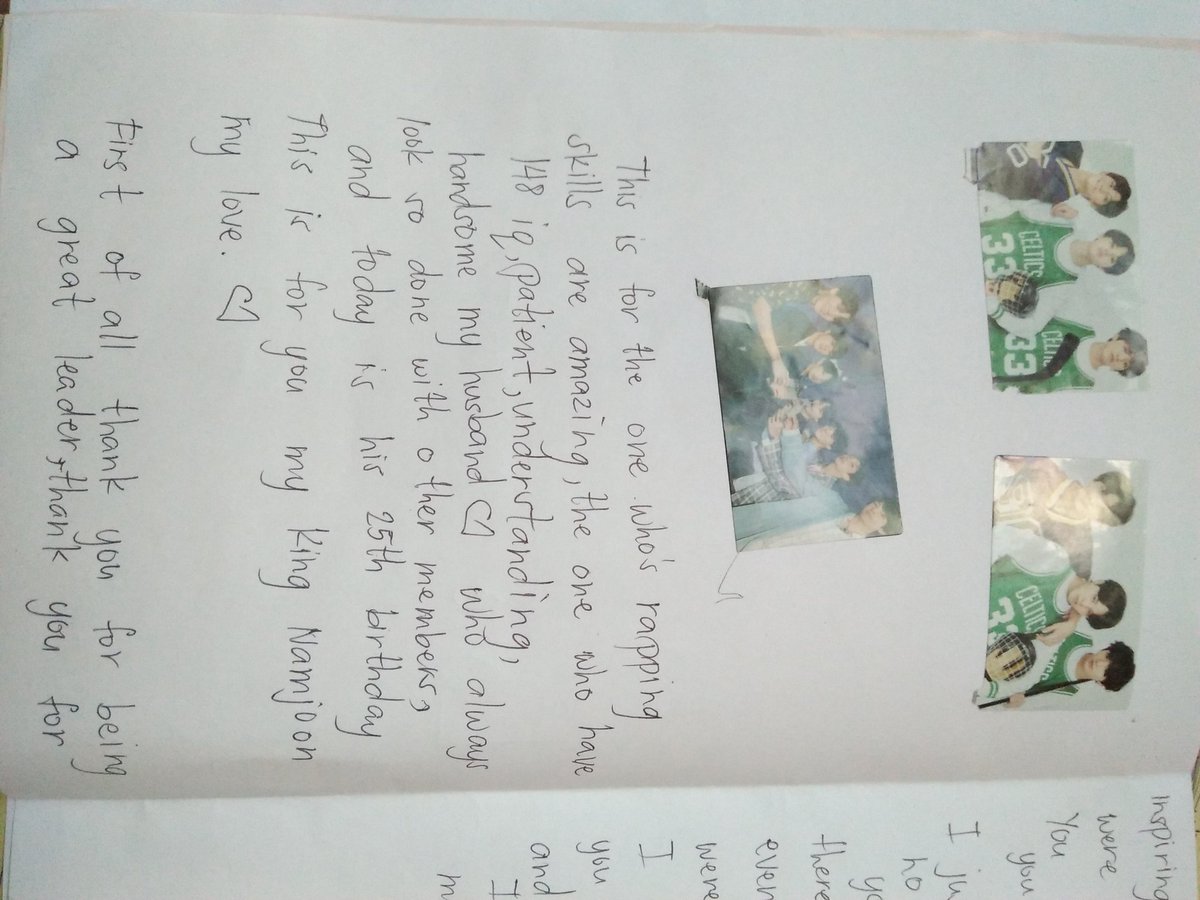 CELTICS
33
CELTIC
33
CELTICS
This is for the one who's rapping
skills are amazing, the one who have
148 iq, patient, understanding,
handsome my husband ♡ who always
look so done with other members,
and today is his 25th birthday
This is for you my king Namjoon
my love. ♡
First of all thank you for being
a great leader, thank you for
inspiring
were
You
you
I ju
ho
yo
there
even
were
I
you
and
I
m